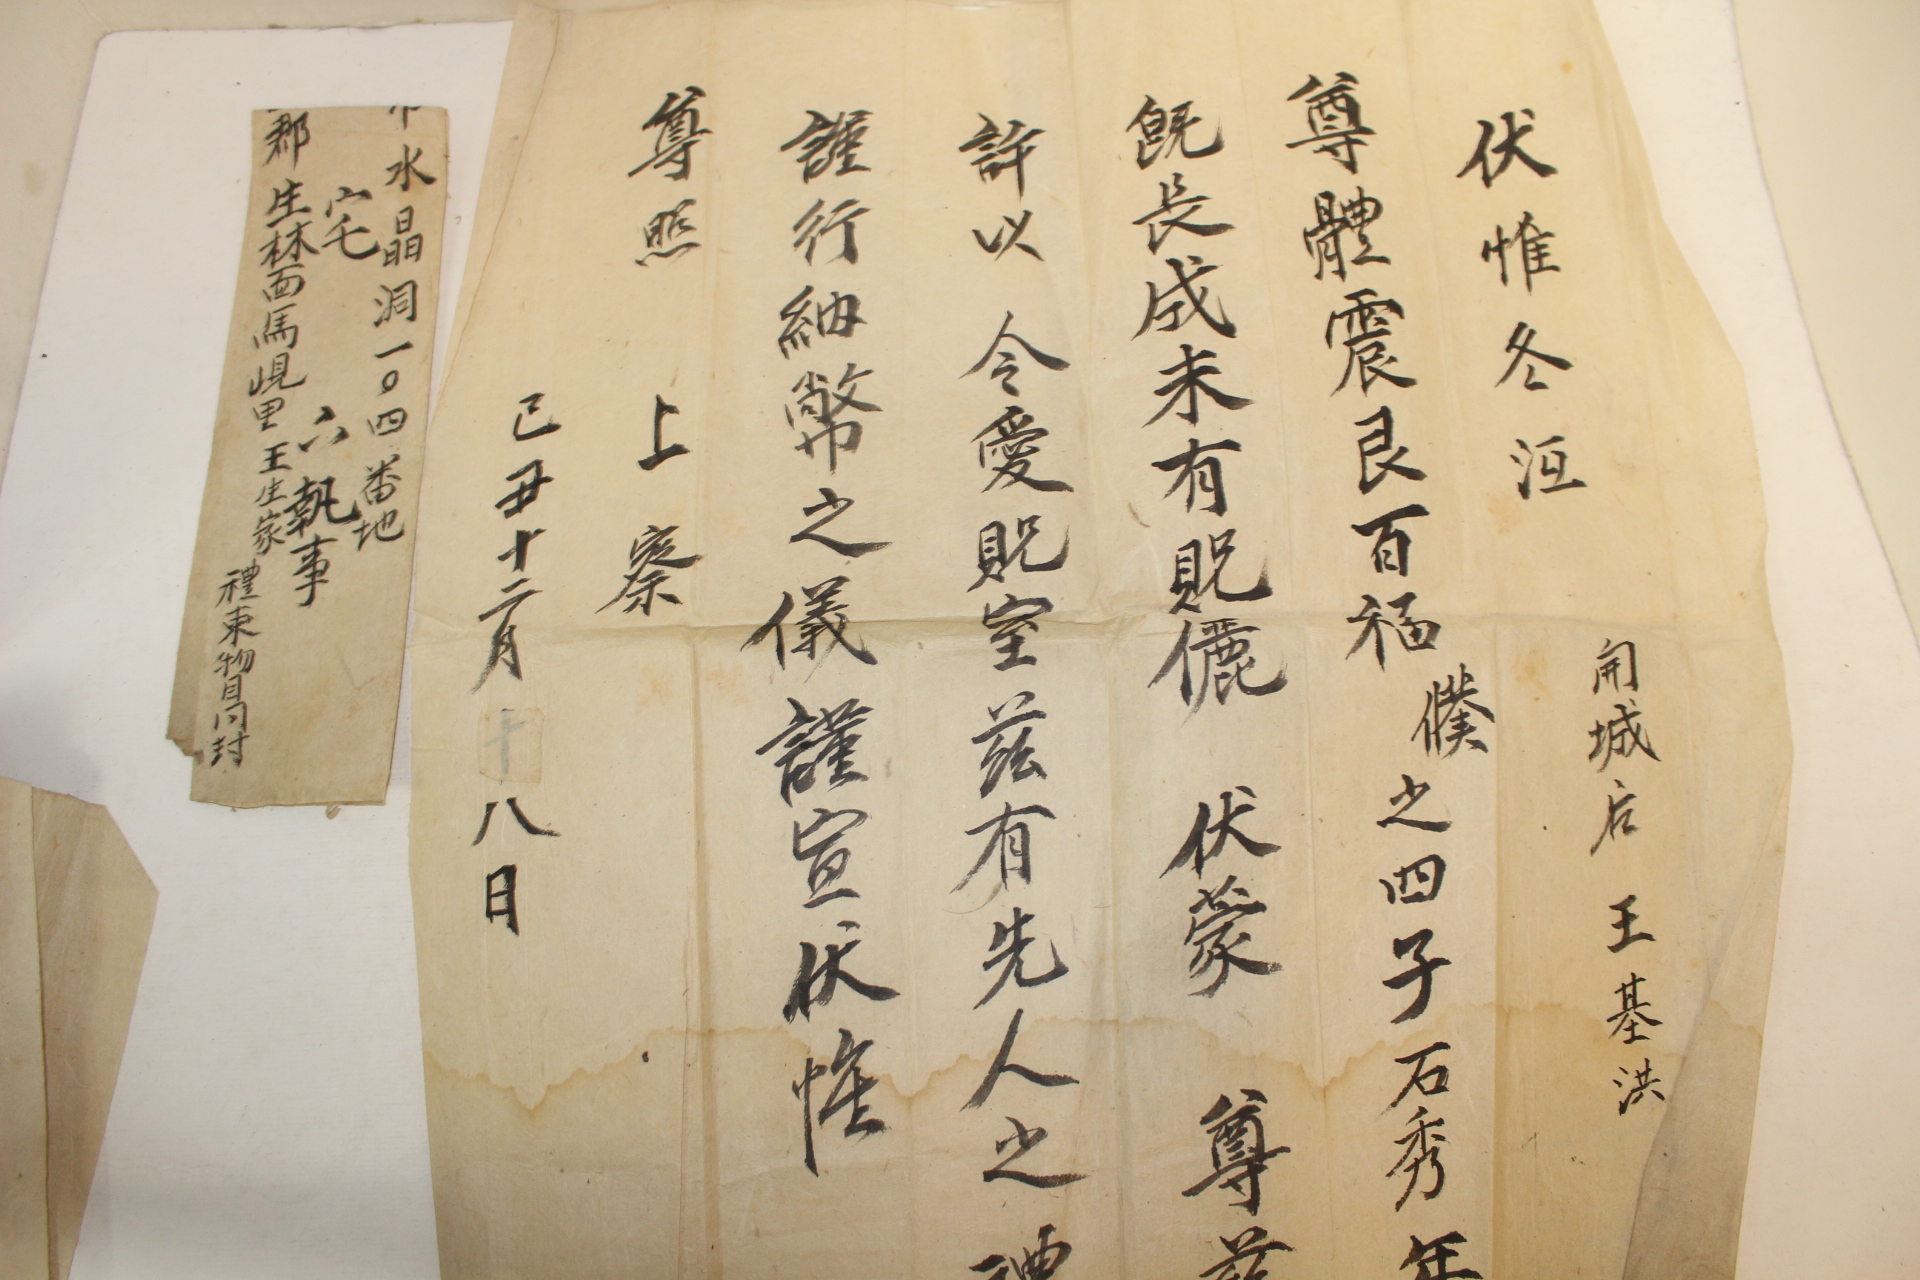 開城后 王基洪
伏惟冬沍
尊體震艮百福 僕之四子石秀年
旣長成未有貺儷 伏蒙 尊慈
許以 令愛貺室玆有先人之禮
謹行納幣之儀 謹宣伏惟
尊照 上察
己丑十二月十八日
水晶洞一〇四番地
宅 六 執事
郡 生林面馬峴里 王生家 禮柬物目同封